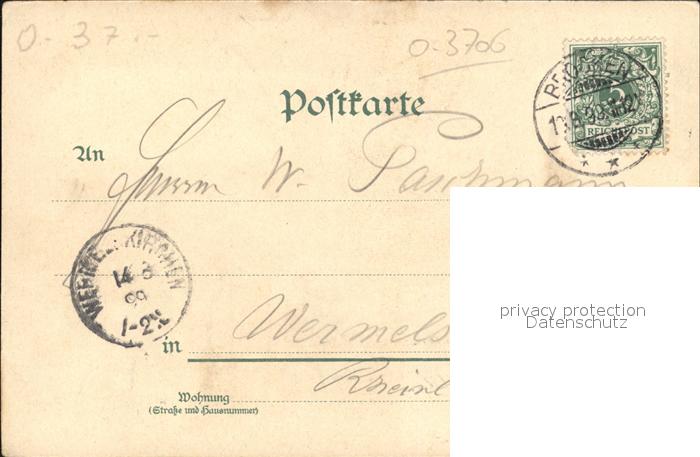 O- 37.-
O-3706
Postkarte
BROCKEN
5
REICHSPOST
An
Herrn W. Paschmann
WERMELSKIRCHEN
14 8
99
1-2N
privacy protection
Datenschutz
in Wermels
Rheinl
Wohnung
(Straße und Hausnummer)